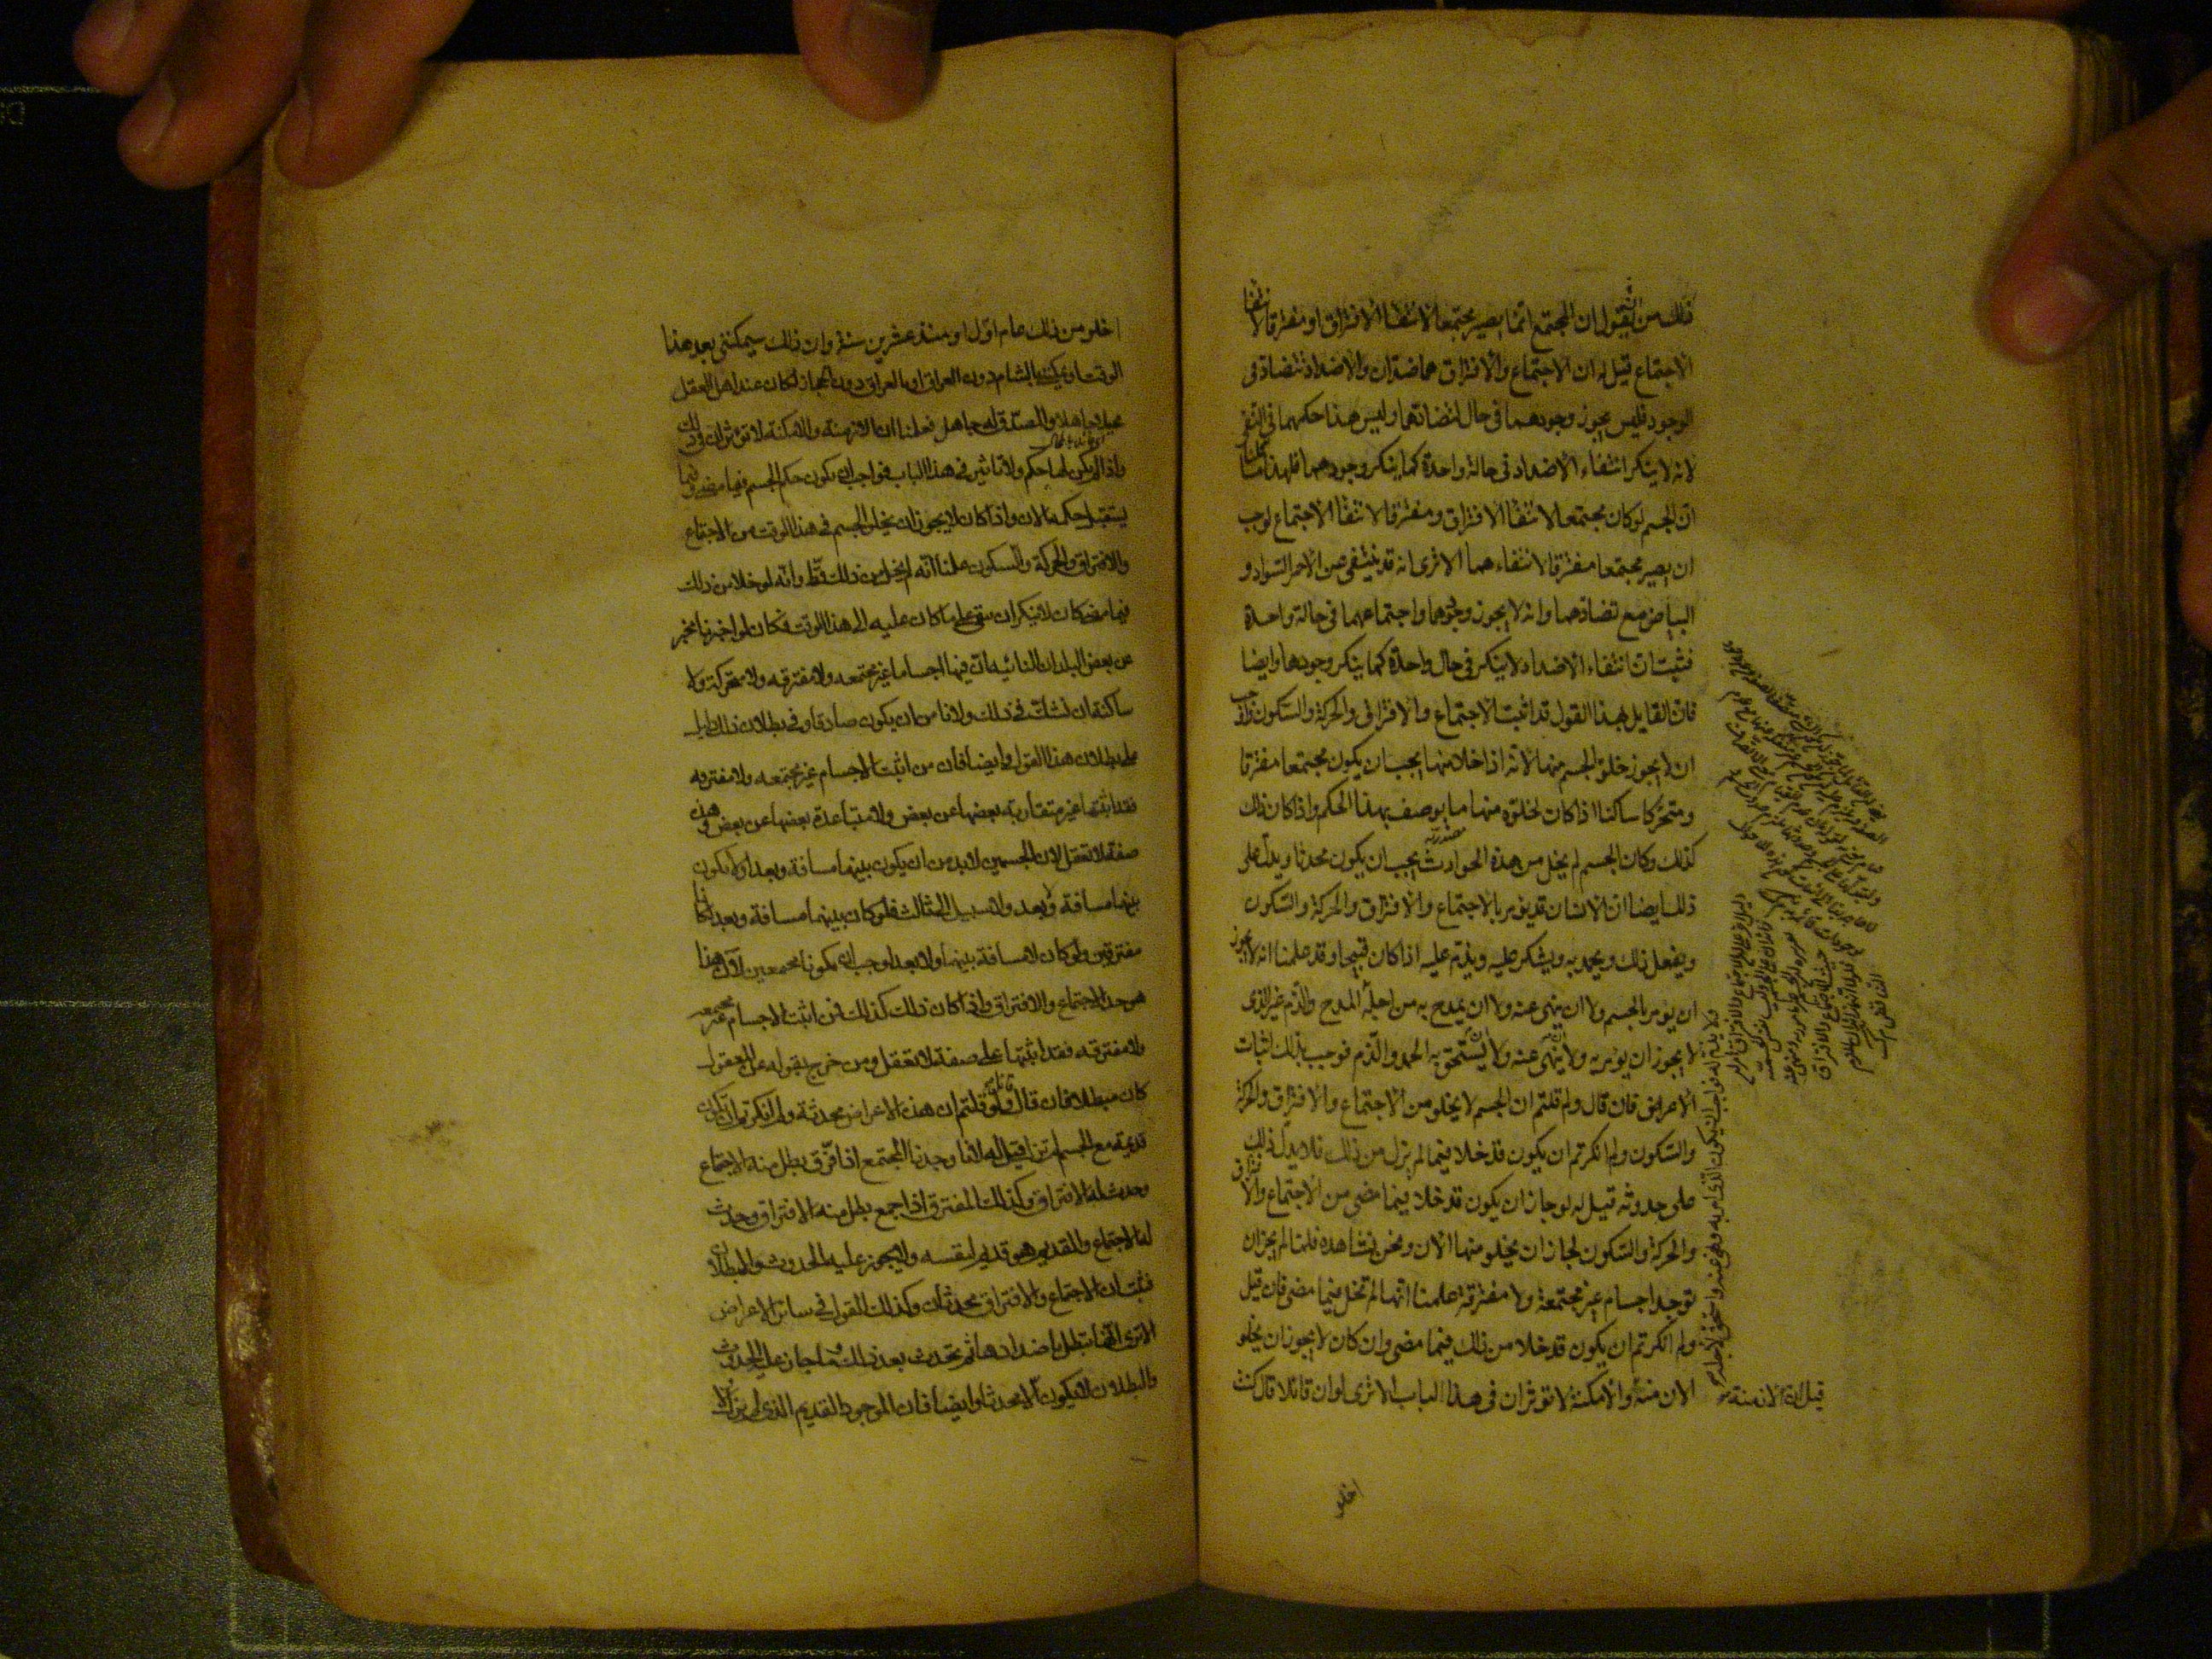 ذلك من ان يقول ان المجتمع انما يصير مجتمعا لانتفا الافتراق او مفترقا لانتفا
الاجتماع قيل له ان الاجتماع والافتراق هما ضدان والاضداد تتضاد في
الوجود فليس يجوز وجودهما في حال لتضادهما وليس هذا حكمهما في النفي
لانه لا ينكر انتفاء الاضداد في حالة واحدة كما ينكر وجودهما فلهذا ما قلنا
ان الجسم لو كان مجتمعا لانتفا الافتراق ومفترقا لانتفا الاجتماع لوجب
ان يصير مجتمعا مفترقا لانتفاءهما الا ترى انه قد ينتفى عن الاحمر السواد و
البياض مع تضادهما وانه لا يجوز وجودهما واجتماعهما في حالة واحدة
فثبت ان انتفاء الاضداد لا ينكر في حال واحدة كما ينكر وجودها وايضا
فان القايل بهذا القول قد اثبت الاجتماع والافتراق والحركة والسكون واوجب
ان لا يجوز خلو الجسم منها لانه اذا خلا منها يجب ان يكون مجتمعا مفترقا
ومتحركا ساكنا اذا كان لخلوه منها ما يوصف بهذا الحكم واذا كان ذلك
كذلك وكان الجسم لم يخل من هذه الحوادث يجب ان يكون محدثا ويدل على
ذلك ايضا ان الانسان قد يؤمر بالاجتماع والافتراق والحركة والسكون
ويفعل ذلك ويحمد به ويشكر عليه ويذم عليه اذا كان قبيحا وقد علمنا انه لا يجوز
ان يؤمر بالجسم ولا ان ينهى عنه ولا ان يمدح به من اجله المدح والذم غير الذى
لا يجوز ان يؤمر به ولا ان ينهى عنه ولا ان يستحق به الحمد والذم فوجب بذلك اثبات
الاعراض فان قال ولم قلتم ان الجسم لا يخلو من الاجتماع والافتراق والحركة
والسكون ولم انكرتم ان يكون قد خلا فيما لم يزل من ذلك فلا يدل ذلك
على حدوثه قيل له لو جاز ان يكون قد خلا فيما مضى من الاجتماع والافتراق
والحركة والسكون لجاز ان يخلو منها الان ونحن نشاهده فلما لم يجز ان
توجد اجسام غير مجتمعة ولا مفترقة علمنا انها لم تخل فيما مضى فان قيل
ولم انكرتم ان يكون قد خلا من ذلك فيما مضى وان كان لا يجوز ان يخلو
الان منه والامكنة لا تؤثران في هذا الباب الا ترى لو ان قائلا قال كنت
قيل ان الازمنة
اخلو
اخلو من ذلك عام اول او منذ عشرين سنة وان ذلك سيمكننى بعد هذا
الوقت او يمكننى بالشام دون العراق او بالعراق دون الحجاز لكان عند اهل العقل
مخبلا جاهلا والمصدق له جاهل فعلمنا ان الازمنة والامكنة لا تؤثران في ذلك
واذا لم يكن لها حكم ولا تاثير في هذا الباب فواجب ان يكون حكم الجسم فيما مضى وفيما
يستقبل حكمه الان واذا كان لا يجوز ان يخلو الجسم في هذا الوقت من الاجتماع
والافتراق والحركة والسكون علمنا انه لم يخل من ذلك قط وانه لو خلا من ذلك
فيما مضى كان لا ينكر ان يبقى على ما كان عليه الى هذا الوقت فكان لو اخبرنا مخبر
عن بعض البلدان النائيه ان فيها اجساما غير مجتمعه ولا مفترقه ولا متحركة ولا
ساكنة ان نشك في ذلك ولا نامن ان يكون صادقا وفي بطلان ذلك دليل
على بطلان هذا القول وايضا فان من اثبت الاجسام غير مجتمعه ولا مفترقه
فقد اثبتها غير متقاربة بعضها عن بعض ولا متباعدة بعضها عن بعض وهذه
صفة لا تعقل لان الجسمين لا بد من ان يكون بينهما مسافة وبعد او لا يكون
بينهما مسافة ولا بعد ولا سبيل الى ثالث فلو كان بينهما مسافة وبعد كانا
مفترقين ولو كان لا مسافة بينهما ولا بعد لوجب ان يكونا مجتمعين لان هذا
هو حد الاجتماع والافتراق واذا كان ذلك كذلك فمن اثبت الاجسام غير مجتمعه
ولا مفترقه فقد اثبتها على صفة لا تعقل ومن خرج بقوله عن المعقول
كان مبطلا فان قال قائل ولم قلتم ان هذه الاعراض محدثة ولم انكرتم ان تكون
قديمة مع الجسم لم تزل قيل له لانا وجدنا المجتمع اذا فرق بطل منه الاجتماع
وحدث له الافتراق وكذلك المفترق اذا جمع بطل منه الافتراق وحدث
له الاجتماع والقديم هو قديم لنفسه ولا يجوز عليه الحدوث والبطلان
فثبت ان الاجتماع والافتراق محدثان وكذلك القول في سائر الاعراض
الا ترى انها تبطل باضدادها ثم تحدث بعد ذلك وما جاز عليه الحدوث
والبطلان لا يكون الا محدثا وايضا فان الموجود القديم الذى لم يزل لا